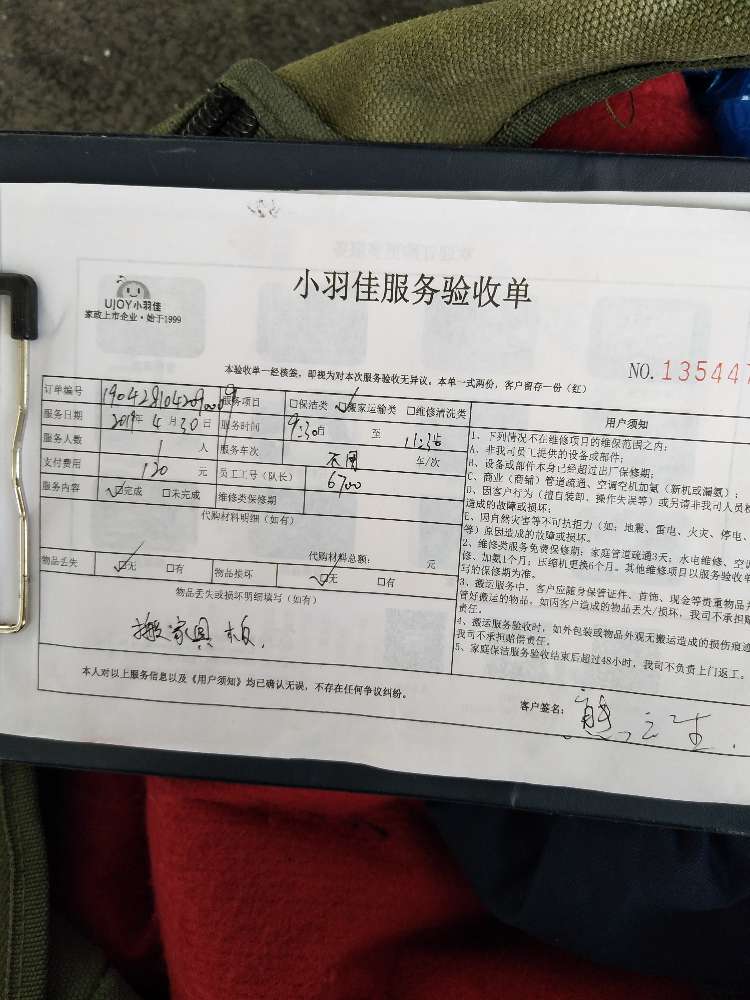 UJOY小羽佳
家政上市企业·始于1999
小羽佳服务验收单
NO. 135447
本验收单一经核签，即视为对本次服务验收无异议。本单一式两份，客户留存一份（红）
订单编号 服务项目 □保洁类 ☑搬家运输类 □维修清洗类
服务日期 2019年 4月30日 服务时间 9:30自 至 11:35
服务人数 1 人 服务车次 不用 车/次
支付费用 120 元 员工工号（队长） 6700
服务内容 ☑完成 □未完成 维修类保修期
代购材料明细（如有）
代购材料总额： 元
物品丢失 ☑无 □有 物品损坏 ☑无 □有
物品丢失或损坏明细填写（如有）
搬家具木板.
本人对以上服务信息以及《用户须知》均已确认无误，不存在任何争议纠纷。
客户签名：熊
用户须知
1、下列情况不在维修项目的维保范围之内：
A、非我司员工提供的设备或部件；
B、设备或部件本身已经超过出厂保修期；
C、商业（商铺）管道疏通、空调空机加氟（新机或漏氟）；
D、因客户行为（擅自装卸、操作失误等）或另请非我司人员
造成的故障或损坏；
E、因自然灾害等不可抗拒力（如：地震、雷电、火灾、停电、
等）原因造成的故障或损坏。
2、维修类服务免费保修期：家庭管道疏通3天；水电维修、空
修、加氟1个月；压缩机更换6个月。其他维修项目以服务验收单
写的保修期为准。
3、搬运服务中，客户应随身保管证件、首饰、现金等贵重物品并
管好搬运的物品，如因客户造成的物品丢失/损坏，我司不承担赔
责任。
4、搬运服务验收时，如外包装或物品外观无搬运造成的损伤痕迹
我司不承担赔偿责任。
5、家庭保洁服务验收结束后超过48小时，我司不负责上门返工。